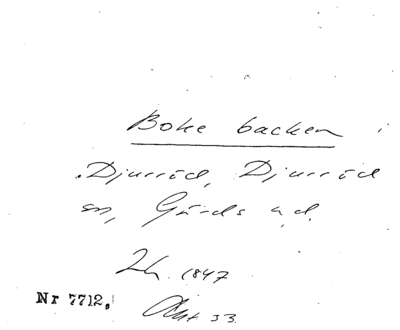 Boke backen i
Djurröd, Djurröd
sn, Gärds hd.
Lh. 1847
Nr 7712, Akt 33.